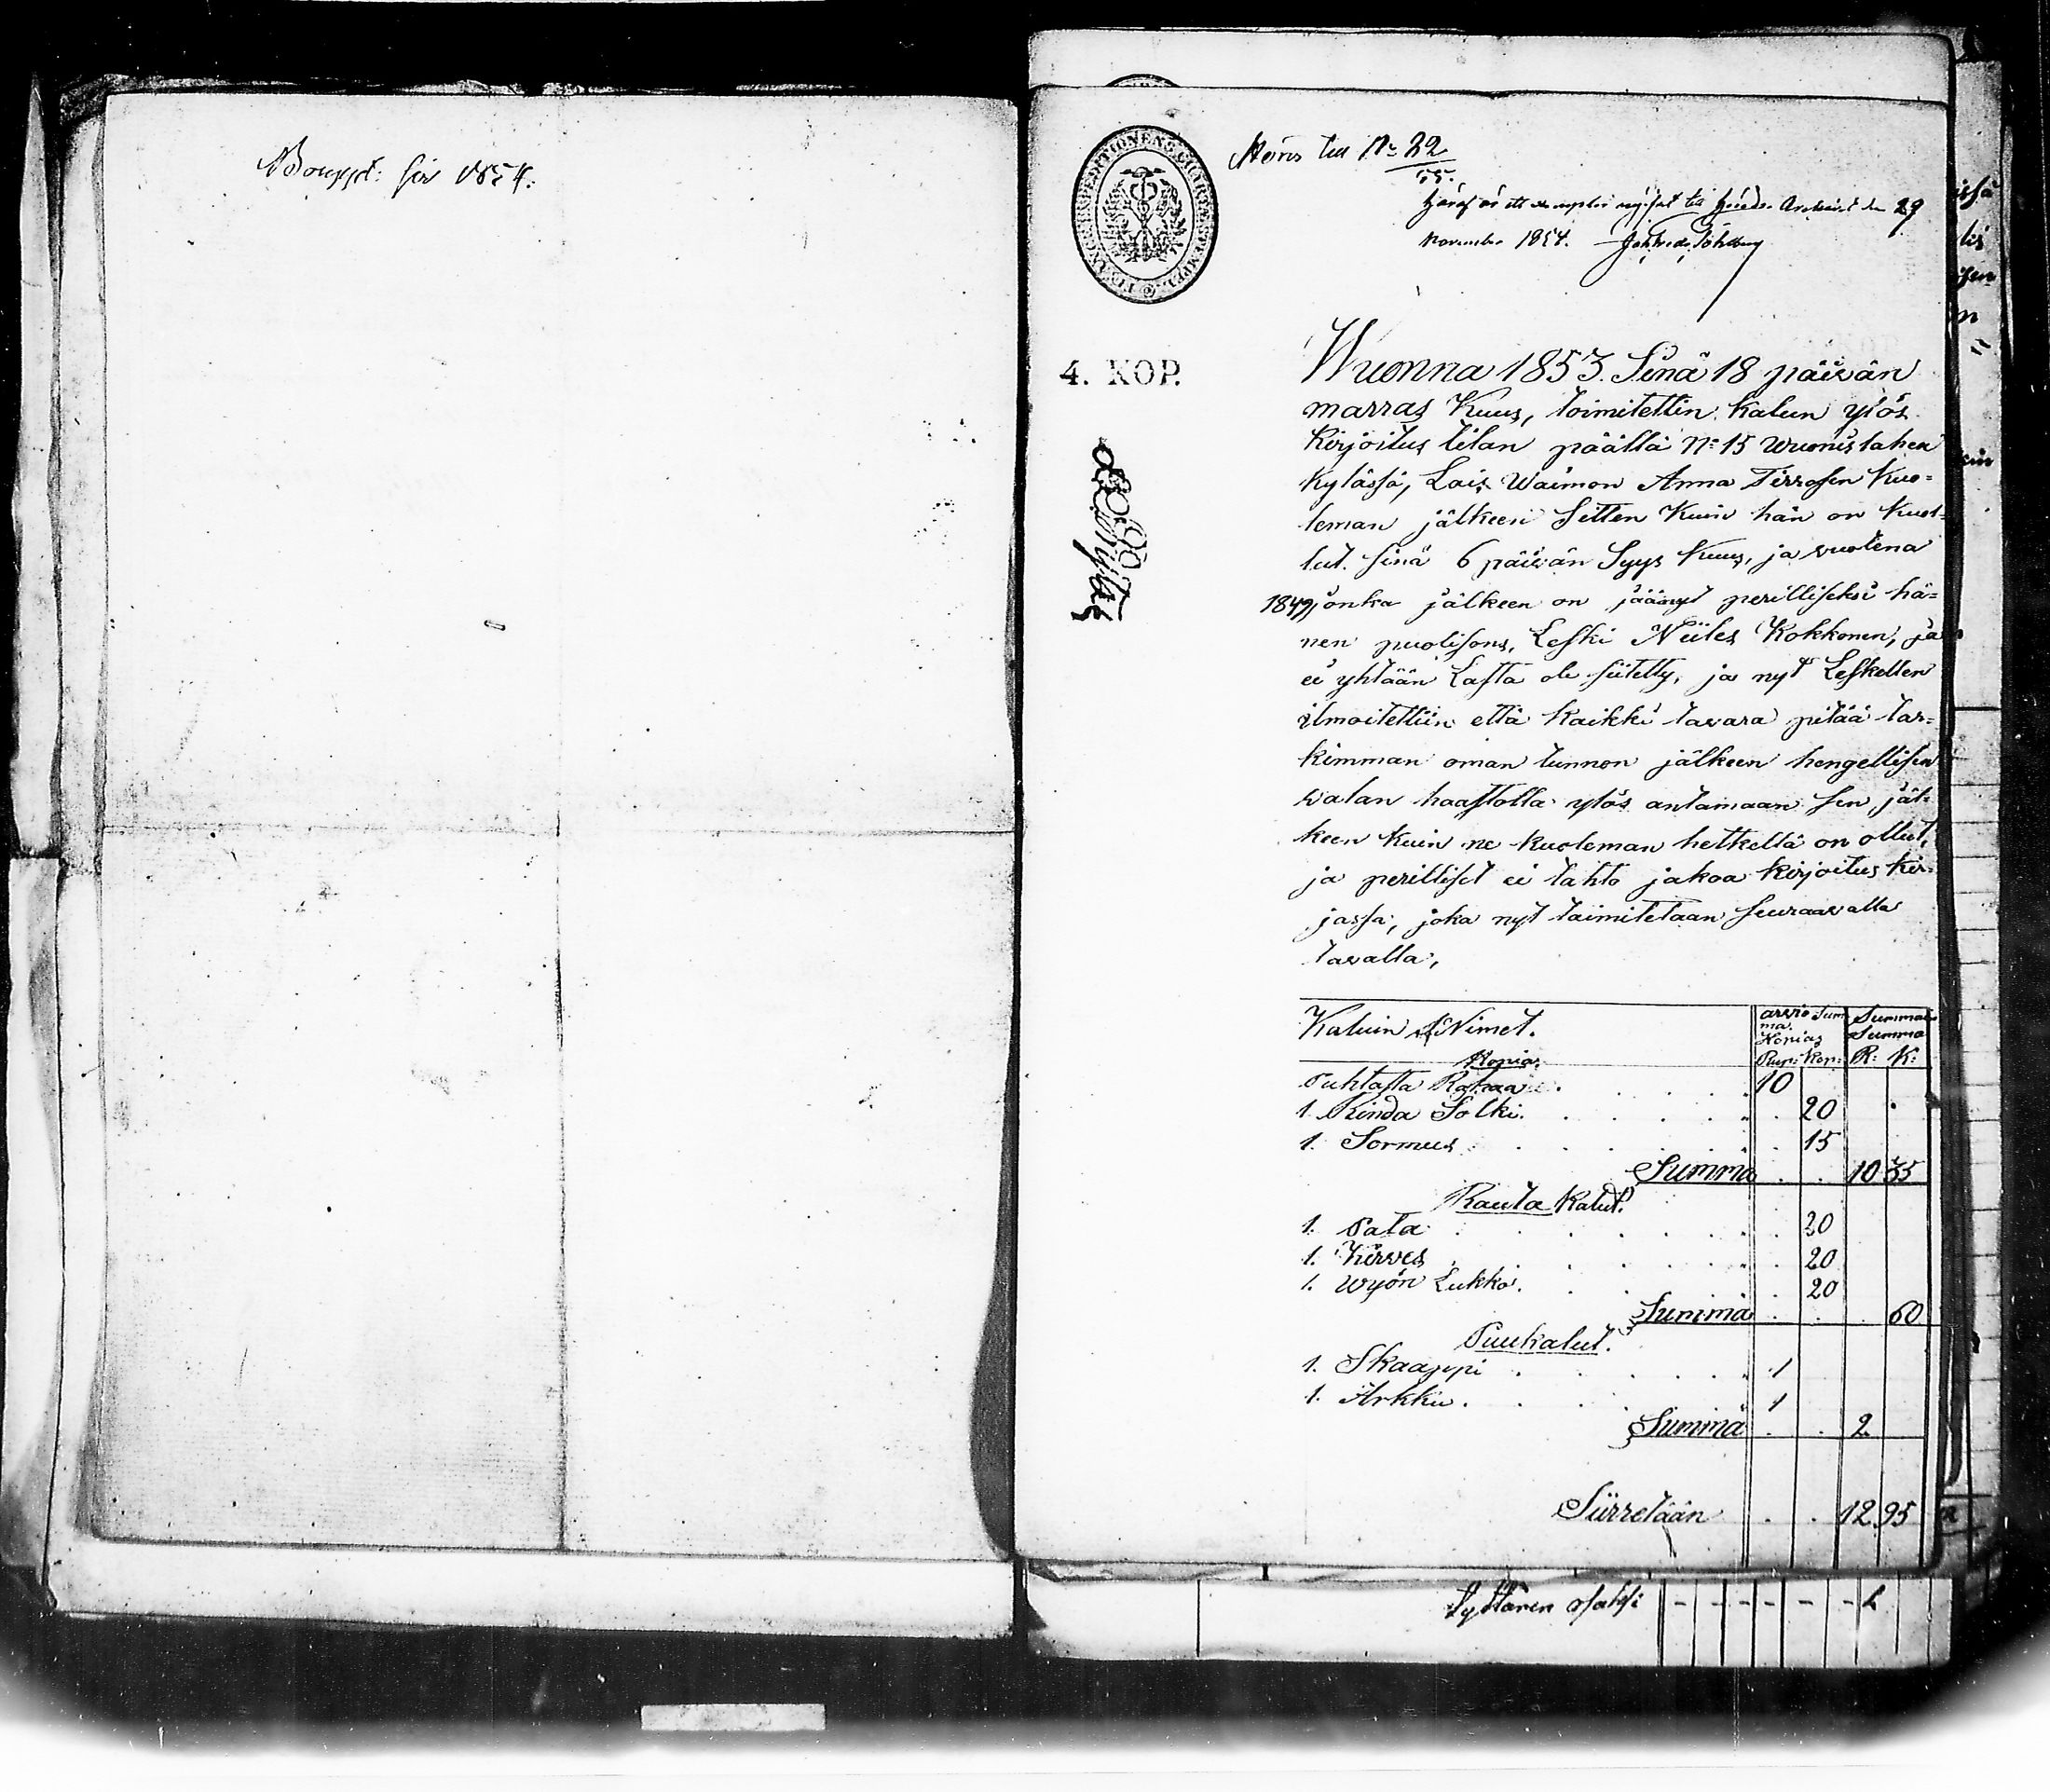 Bouppt: för 1854.
till No 22
55.
Häraf är ett exemplar till Härads Archivet den 29
November 1854.
FINANCE EXPEDITIONENS CHARTÆ STEMPEL
4. KOP.
Wuonna 1853. Sinä 18 päivän
marras Kuus, toimitettin Kalun ylös
Kirjoitus tilan päällä No 15 Wuonislahen
Kylässä, Lais Waimon Anna Tirrosen Kuo=
leman jälkeen Sitten Kuin hän on Kuol=
lut. sinä 6 päivän Syys Kuus, ja vuotena
1849, jonka jälkeen on jäänyt perilliseksi hä=
nen puolisons, Leski Niiles Kokkonen, ja
ei yhtään Lasta ole siitetty, ja nyt Leskellen
ilmoitettiin että Kaikki tavara pitää tar=
kimman oman tunnon jälkeen hengellisen
valan haastolla ylös antamaan sen jäl=
keen Kuin ne Kuoleman hetkellä on ollut,
ja perilliset ei tahto jakoa Kirjoitus Kir=
jassa, joka nyt toimitetaan seuraavalla
tavalla,
Kaluin Nimet. arvio Sum Summain
ma. Summa
Hopias
Hopia. Rup: Kop: R: K:
Puhtasta Rahaa 10
1. Rinda Solki. 20
1. Sormus 15
Summa 10 35
Rauta Kalut.
1. Pata 20
1. Kirves 20
1. Wyön Lukko. 20
Summa 60
Puukalut.
1. Skaappi 1
1. Arkku. 1
Summa 2
Siirretään 12 95
Tyttären osaksi